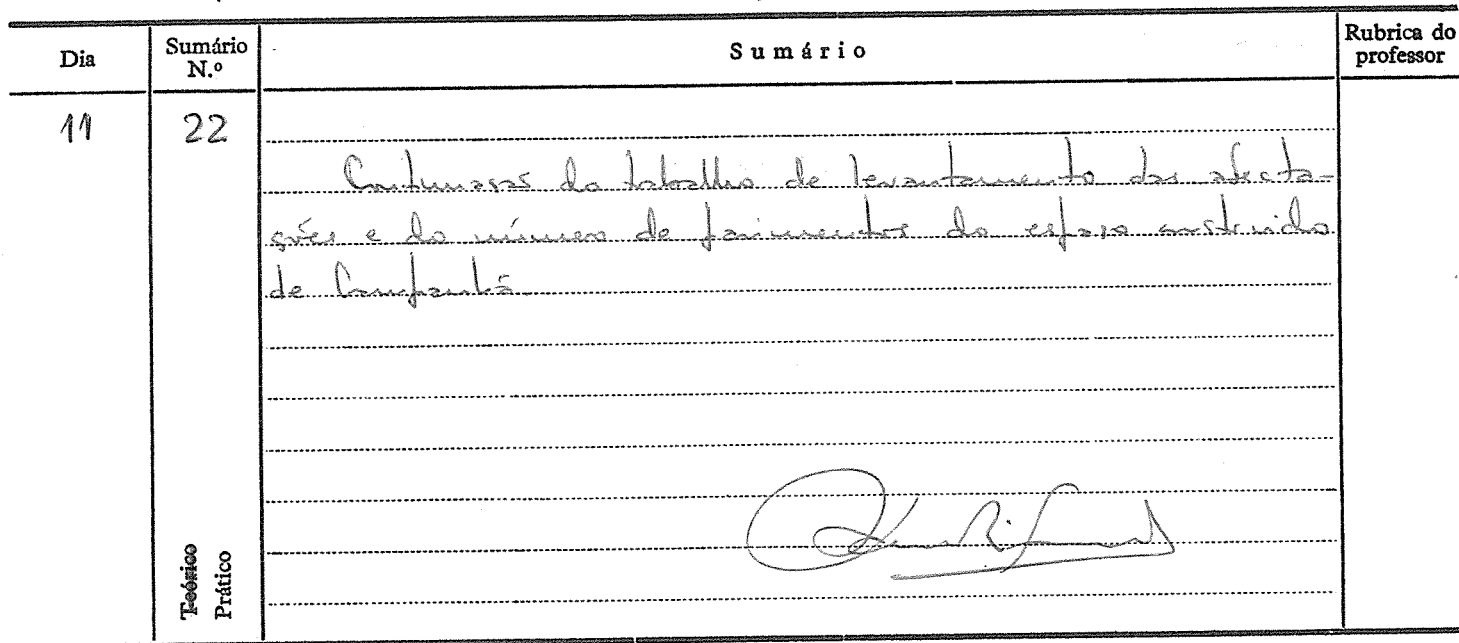 Dia Sumário N.º Sumário Rubrica do professor
11 22
Continuação do trabalho de levantamento das afecta-
ções e do número de pavimentos do espaço construído
de Campanhã
Teórico
Prático